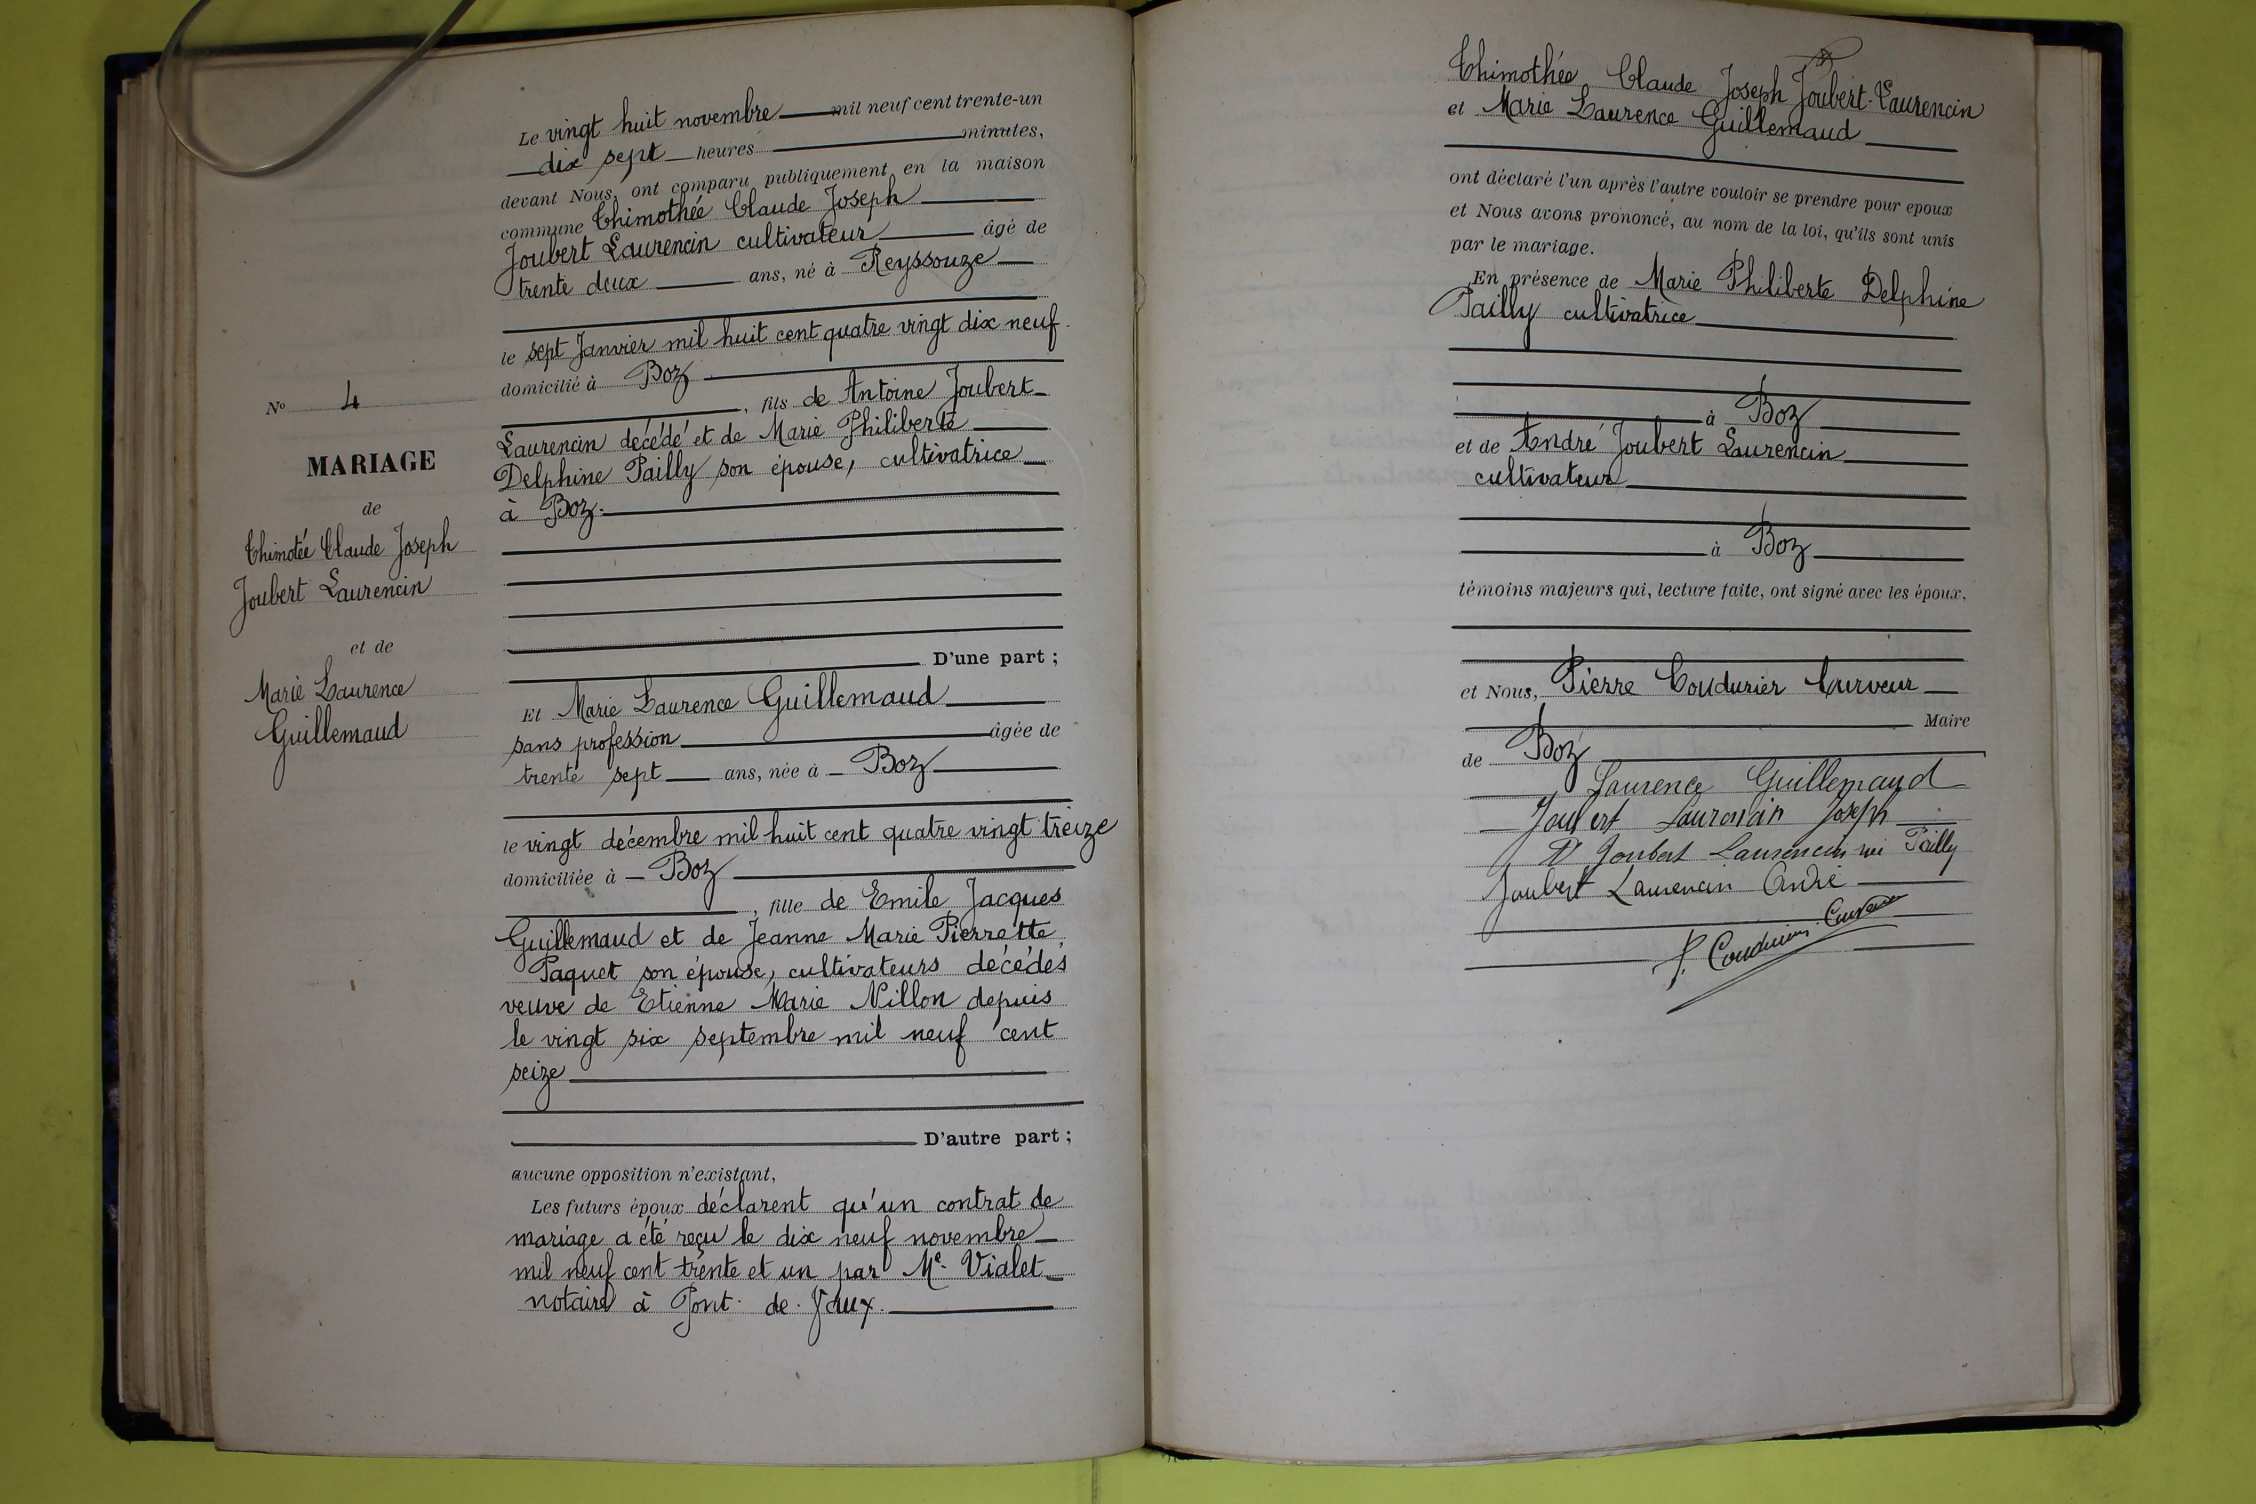 Le vingt huit novembre mil neuf cent trente-un
dix sept heures minutes,
devant Nous, ont comparu publiquement en la maison
commune Thimothée Claude Joseph
Joubert Laurencin cultivateur âgé de
trente deux ans, né à Reyssouze
le sept Janvier mil huit cent quatre vingt dix neuf
domicilié à Boz
, fils de Antoine Joubert
Laurencin décédé et de Marie Philiberte
Delphine Pailly son épouse, cultivatrice
à Boz.
D'une part ;
Et Marie Laurence Guillemaud
sans profession âgée de
trente sept ans, née à Boz
le vingt décembre mil huit cent quatre vingt treize
domiciliée à Boz
, fille de Emile Jacques
Guillemaud et de Jeanne Marie Pierrette
Paquet son épouse, cultivateurs décédés
veuve de Etienne Marie Nillon depuis
le vingt six septembre mil neuf cent
seize
D'autre part ;
aucune opposition n'existant,
Les futurs époux déclarent qu'un contrat de
mariage a été reçu le dix neuf novembre
mil neuf cent trente et un par Me. Vialet
notaire à Pont-de-Vaux.
No 4
MARIAGE
de
Thimotée Claude Joseph
Joubert Laurencin
et de
Marie Laurence
Guillemaud
Thimothée Claude Joseph Joubert-Laurencin
et Marie Laurence Guillemaud
ont déclaré l'un après l'autre vouloir se prendre pour epoux
et Nous avons prononcé, au nom de la loi, qu'ils sont unis
par le mariage.
En présence de Marie Philiberte Delphine
Pailly cultivatrice
à Boz
et de André Joubert Laurencin
cultivateur
à Boz
témoins majeurs qui, lecture faite, ont signé avec les époux.
et Nous, Pierre Coudurier Curveur
Maire
de Boz
Laurence Guillemaud
Joubert Laurencin Joseph
Vve Joubert Laurencin née Pailly
Joubert Laurencin André
P. Coudurier-Curveur